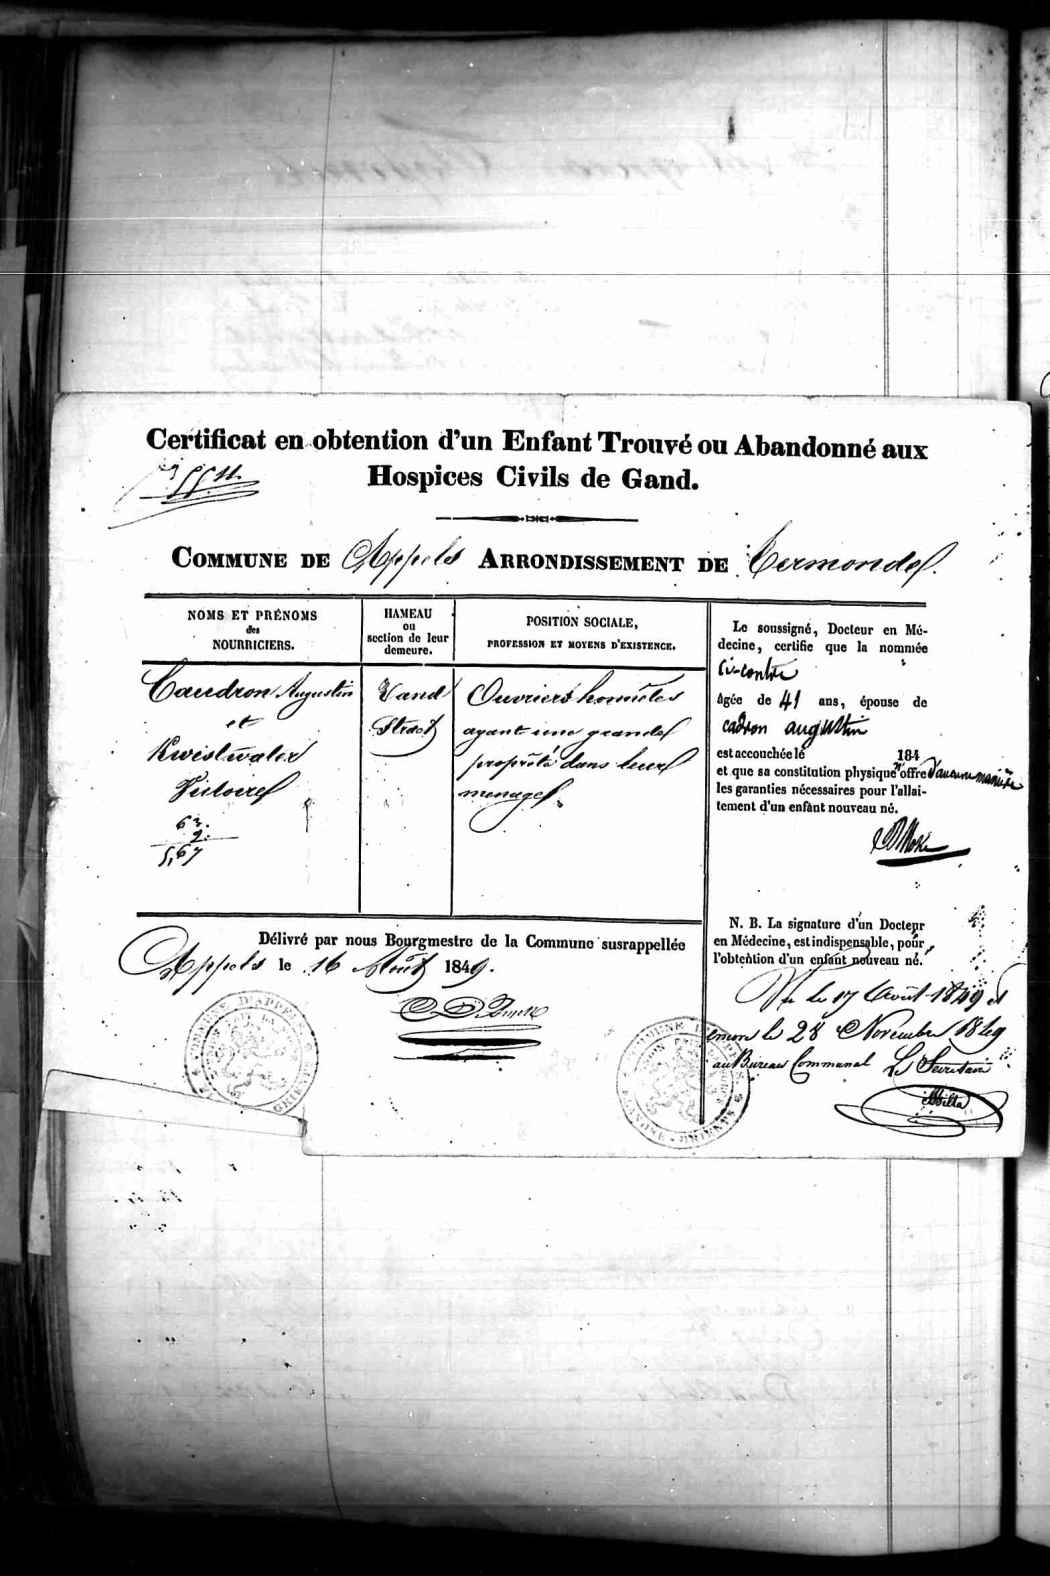 Certificat en obtention d'un Enfant Trouvé ou Abandonné aux
Hospices Civils de Gand.
COMMUNE DE Appels ARRONDISSEMENT DE Termonde.
NOMS ET PRÉNOMS
des
NOURRICIERS.
HAMEAU
ou
section de leur
demeure.
POSITION SOCIALE,
PROFESSION ET MOYENS D'EXISTENCE.
Caudron Augustin
et
Victoire
63.
2.
5,67
Zand
Straet
Ouvriers honnêtes
ayant une grande
propriété dans leur
menage.
Le soussigné, Docteur en Mé-
decine, certifie que la nommée
Ci-contre
âgée de 41 ans, épouse de
cadron augustin
est accouchée le 184
et que sa constitution physique n'offre d'aucune manière
les garanties nécessaires pour l'allai-
tement d'un enfant nouveau né.
N. B. La signature d'un Docteur
en Médecine, est indispensable, pour
l'obtention d'un enfant nouveau né.
Délivré par nous Bourgmestre de la Commune susrappellée
Appels le 16 Août 1849.
Vu le 17 Août 1849 et
encore le 28 Novembre 1849
au Bureau Communal Le Secretaire